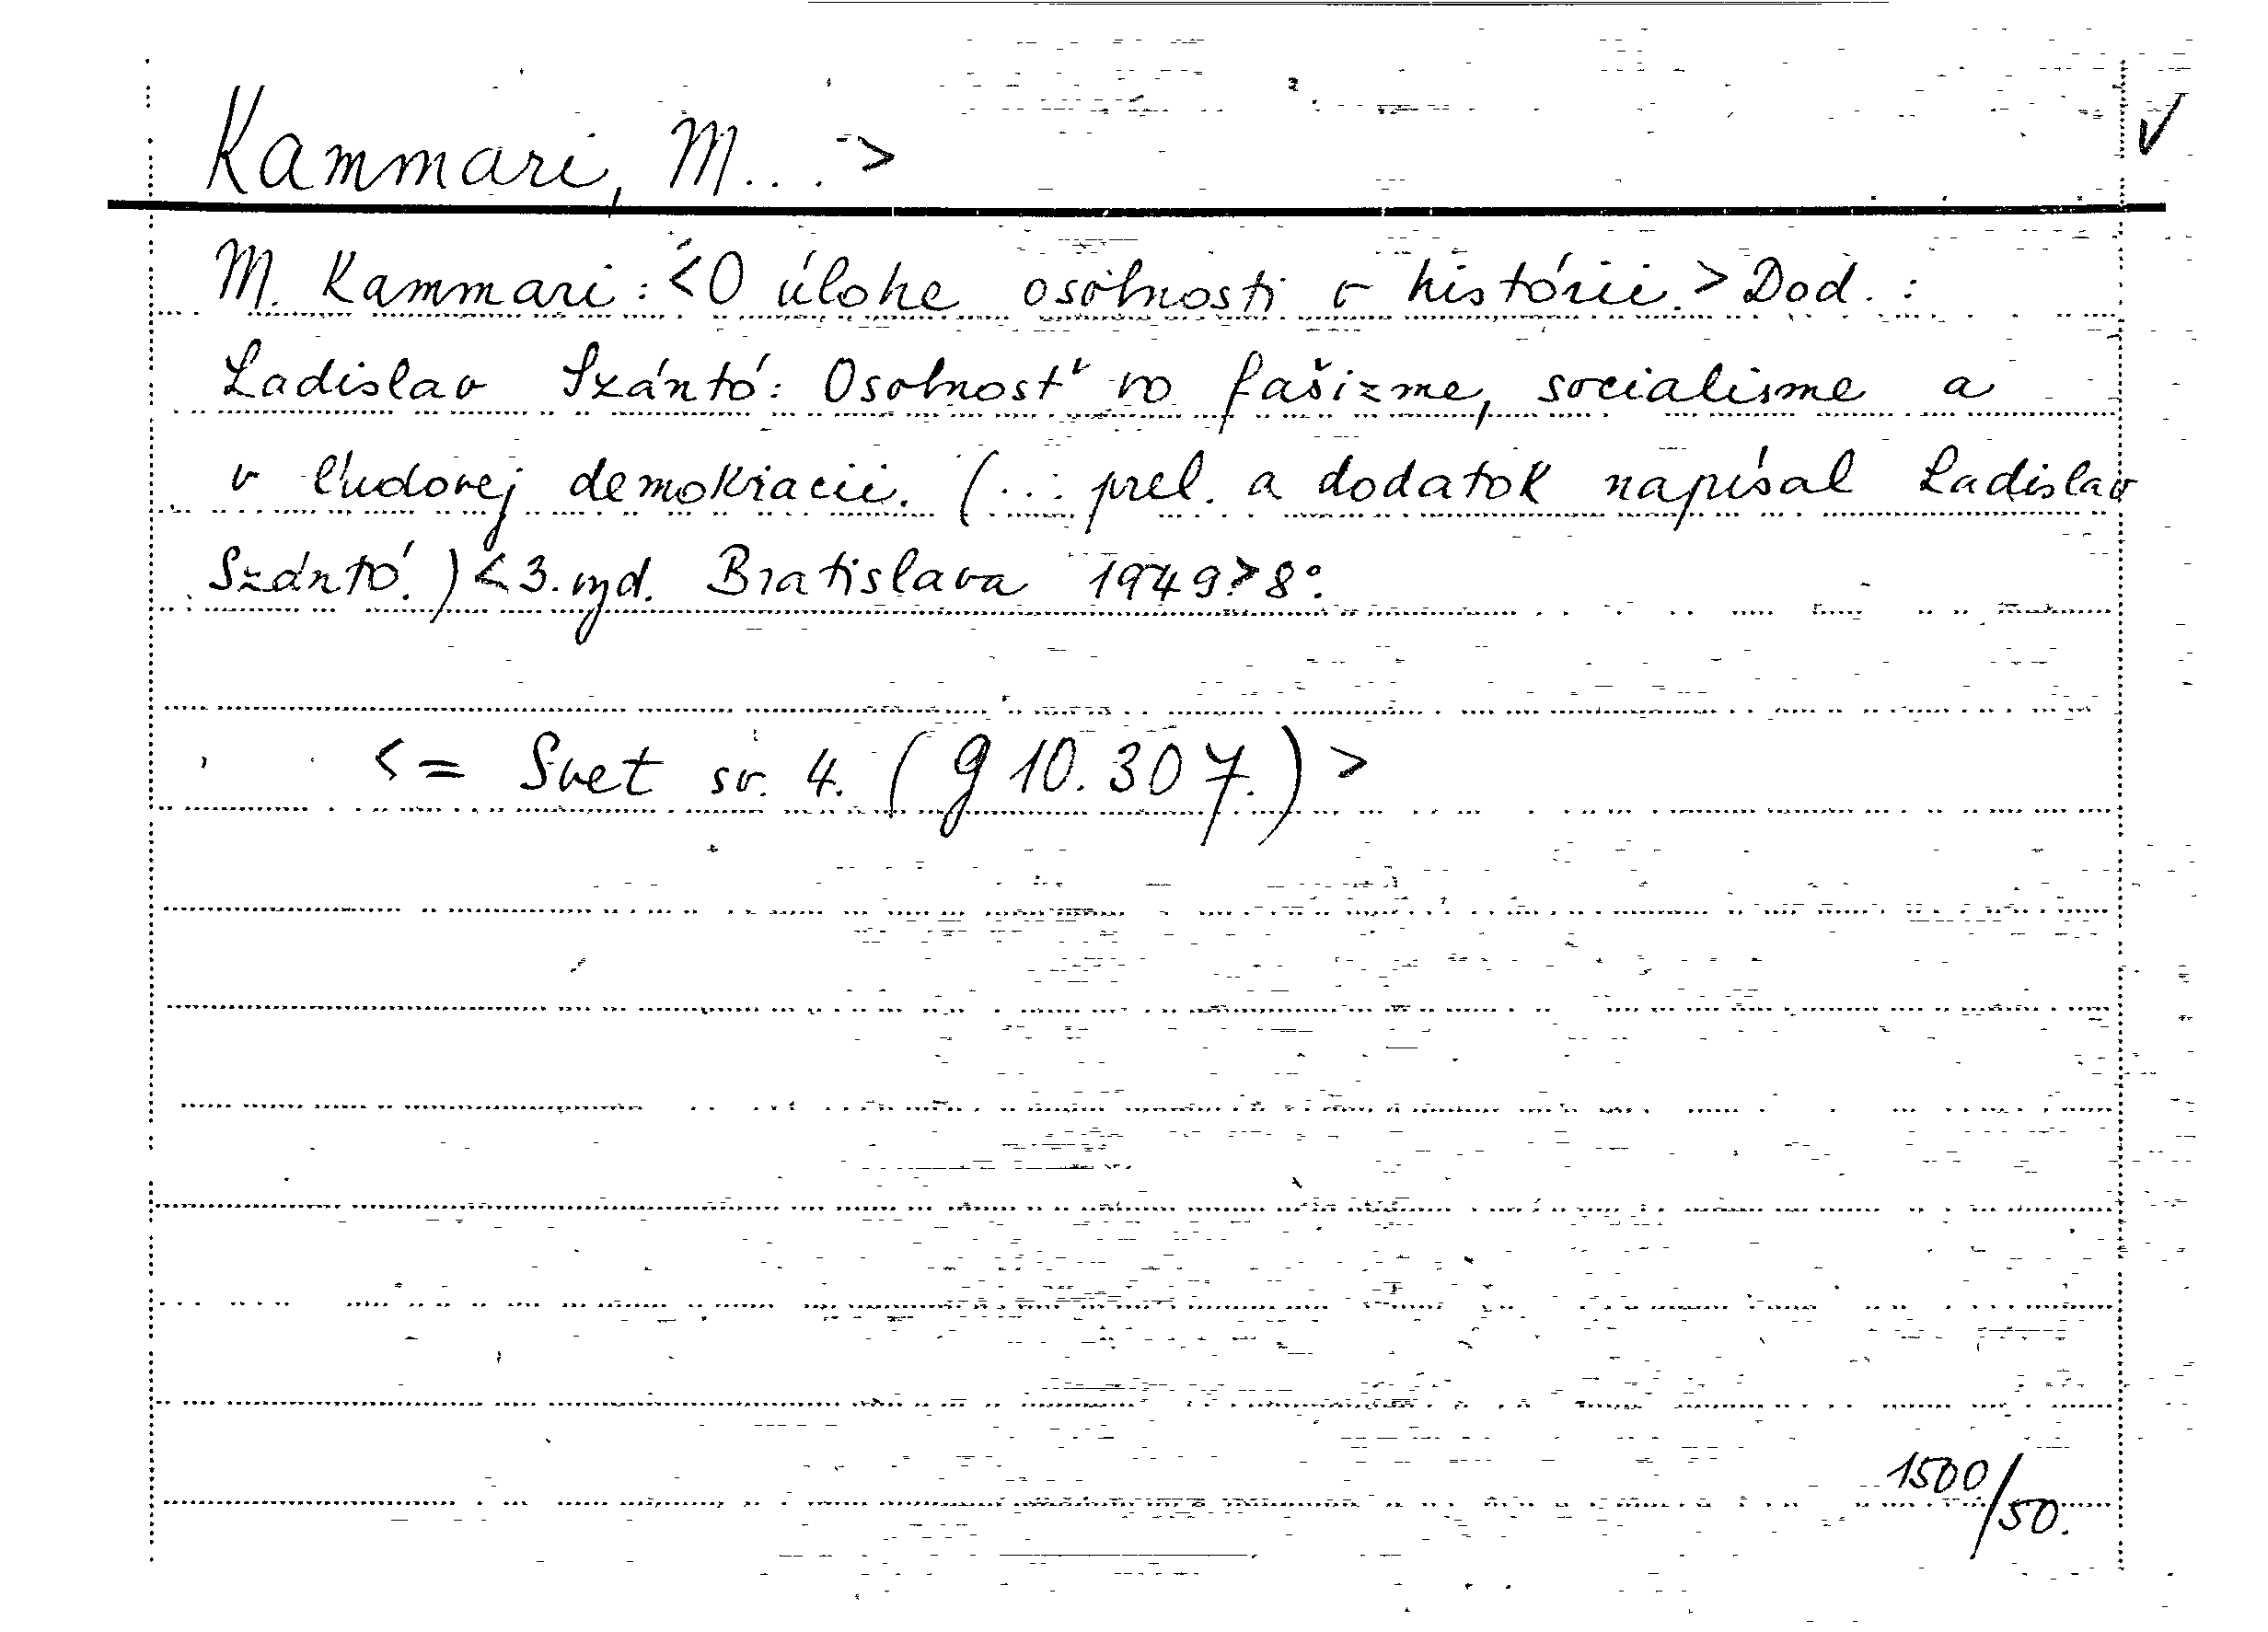 Kammari, M... >
M. Kammari: <O úlohe osobnosti v histórii.> Dod.:
Ladislav Szántó: Osobnosť vo fašizme, socialisme a
v ľudovej demokracii. (... prel. a dodatok napísal Ladislav
Szántó.) <3. vyd. Bratislava 1949> 8°.
<= Svet sv. 4. (g 10.307.)>
1500/50.